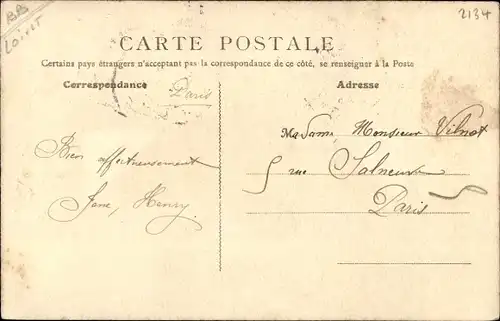 BB
Loiret
2134
CARTE POSTALE
Certains pays étrangers n'acceptant pas la correspondance de ce côté, se renseigner à la Poste
Correspondance
Adresse
Paris
Madame Monsieur Vilnot
5 rue Salneuve
Paris
Bien affectueusement
Jane, Henry